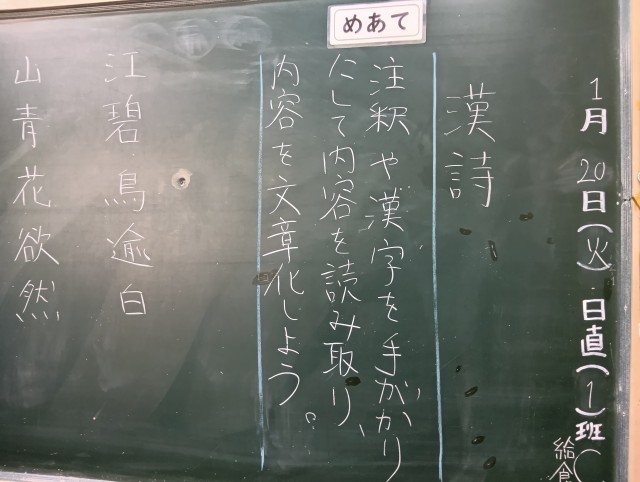 1月20日(火)日直(1)班(
給食
めあて
漢詩
注釈や漢字を手がかり
にして内容を読み取り、
内容を文章化しよう。
江碧鳥逾白
山青花欲然